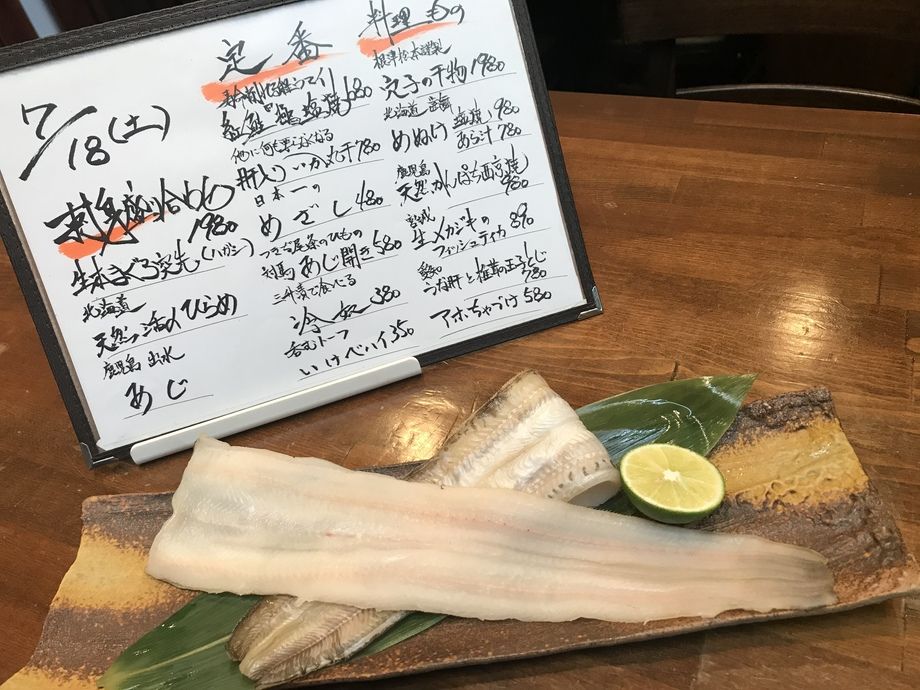 7/18(土)
刺身盛り合わせ
1980
生本まぐろ突先(ハガシ)
北海道
天然活〆ひらめ
鹿児島 出水
あじ
定番
紅鮭 塩焼 680
他に何も要らなくなる
肝入りいか丸干780
日本一の
めざし 480
対馬 あじ開き 580
三升漬で食べる
冷奴 380
呑むトーフ
いけべハイ 350
料理もの
根津松本謹製
穴子の干物 1980
北海道
めぬけ 塩焼 980
あら汁 780
鹿児島
天然かんぱち西京焼
980
宮城
生メカジキの
フィッシュティカ 890
愛知
うなぎ肝と椎茸の玉子とじ
780
アホちゃづけ 580